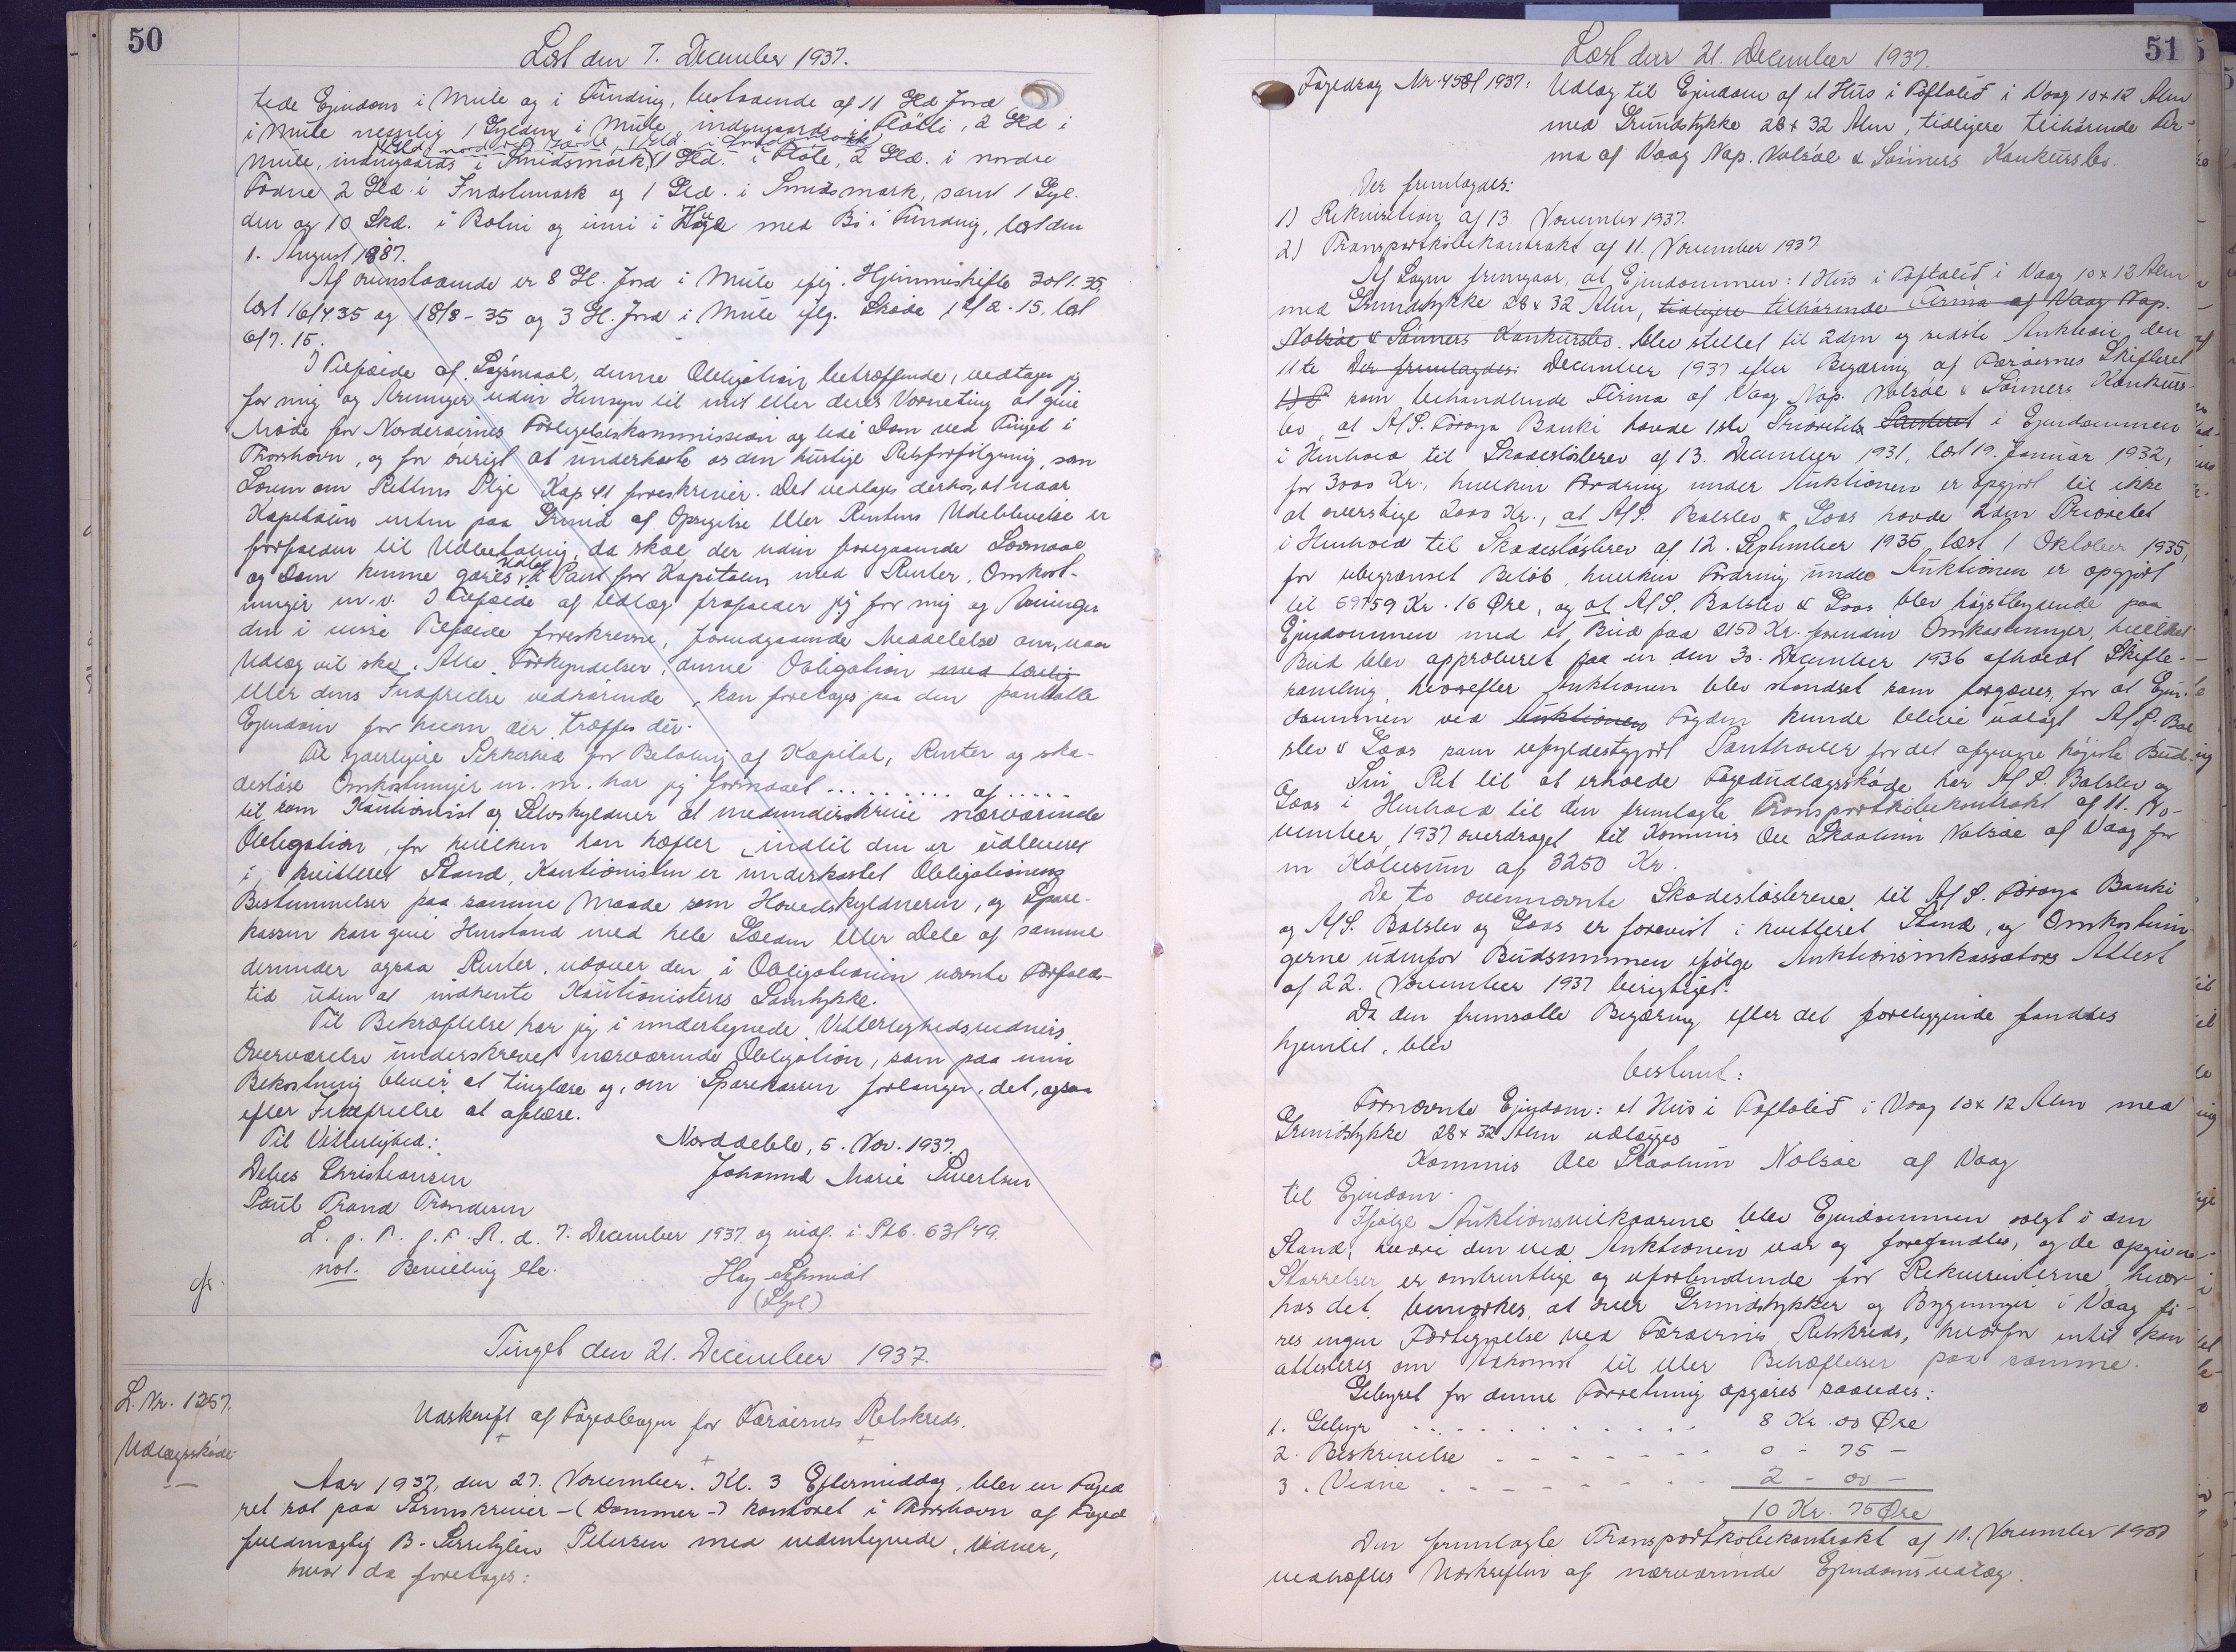 50
Læst den 7. December 1937.
tede Ejendom i Mule og i Funding, bestaaende af 11 Gld Jord
i Mule nemlig 1 Gylden i Mule, indengaards i Fløtti, 2 Gld i
1 Gld. nord ved Gærde, 1 Gld. i
Mule, indengaards i Smidsmark, 1 Gld. i Fløte, 2 Gld. i nordre
2 Gld. i Indstemark og 1 Gld. i Smidsmark, samt 1 Gyl-
den og 10 Skd. i Botni og inni i med Bø i Funding, læst den
1. August 1887.
Af ovenstaaende er 8 Gl. Jord i Mule iflg. Hjemmeskifte 30/1.35,
læst 16/4 35 og 18/8-35 og 3 Gl. Jord i Mule iflg. Skøde 12/2.15. læst
6/7.15.
I Tilfælde af Søgsmaal, denne Obligation betræffende, vedtager jeg
for mig og Arvinger uden Hensyn til mit eller deres Værneting at give
Møde for Nordereernes Forligelseskommission og lide Dom ved Tinget i
Thorshavn, og for øvrigt at underkaste os den hurtige Retsforfølgning, som
Loven om Rettens Pleje Kap 41 foreskriver. Det vedtages derhos, at naar
Kapitalen enten paa Grund af Opsigelse eller Rentens Udeblivelse er
forfalden til Udbetaling, da skal der uden foregaaende Lovmaal
Udlæg
og Dom kunne gøres i Pant for Kapitalen med Renter, Omkost-
ninger m.v. I Tilfælde af Udlæg frafalder jeg for mig og Arvinger
den i visse Tilfælde foreskrevne, forudgaaende Meddelelse om, naar
Udlæg vil ske. Alle Forkyndelser, denne Obligation med lovlig
eller dens Indfrielse vedrørende, kan foretages paa den pantsatte
Ejendom for hvem der træffes der.
Til yderligere Sikkerhed for Betaling af Kapital, Renter og ska-
desløse Omkostninger m. m. har jeg formaaet .......... af .....
til som Kautionist og Selvskyldner at medunderskrive nærværende
Obligation, for hvilken han hæfter, indtil den er udleveret
i kvitteret Stand, Kautionisten er underkastet Obligationens
Bestemmelser paa samme Maade som Hovedskyldneren, og Spare-
kassen kan give Henstand med hele Gælden eller Dele af samme
derunder ogsaa Renter, udover den i Obligationen nævnte Forfalds-
tid uden at indhente Kautionistens Samtykke.
Til Bekræftelse har jeg i undertegnede Vitterlighedsvidners
Overværelse underskrevet nærværende Obligation, som paa min
Bekostning bliver at tinglæse og, om Sparekassen forlanger det, ogsaa
efter Indfrielse at aflæse.
Til Vitterlighed: Norddeble, 5. Nov. 1937.
Debes Christiansen Johanna Marie Sivertsen
Poul Trond Trondesen
L. p. T. f. F. R. d. 7. December 1937 og indf. i Ptb. 63/49.
not. Bevilling etc.
Hag Schmidt
(Stpl)
cfr
Tinget den 21. December 1937.
L. Nr. 1257.
Udlægsskøde
Udskrift af Fogedbogen for Færøernes Retskreds.
Aar 1937, den 27. November. Kl. 3 Eftermiddag, blev en Foged
ret sat paa Sorenskriver-(Dommer-) kontoret i Thorshavn af Foged
fuldmægtig B. Petersen med undertegnede Vidner,
hvor da foretoges:
51
Læst den 21. December 1937.
Fogedsag Nr. 458/1937: Udlæg til Ejendom af et Hus i Toftalið i Vaag 10x12 Alen
med Grundstykke 28x32 Alen, tidligere tilhørende Fir-
ma af Vaag Nap. Nolsøe & Sønners Konkursbo.
Der fremlagdes:
1) Rekvisition af 13. November 1937.
2) Transportkøbekontrakt af 11. November 1937.
Af Sagen fremgaar, at Ejendommen: 1 Hus i Toftalið i Vaag 10x12 Alen
med Grundstykke 28x32 Alen, tidligere tilhørende Firma af Vaag Nap.
Nolsøe & Sønners Konkursbo. blev stillet til 2den og sidste Auktion den
11te Der fremlagdes: December 1937 efter Begæring af Færøernes Skifteret
som behandlende Firma af Vaag Nap. Nolsøe & Sønners Konkurs-
bo, at A/S. Føroya Banki havde 1ste Prioritet i Ejendommen
i Henhold til Skadesløsbrev af 13. December 1931, læst 19. Januar 1932,
for 3000 Kr., hvilken Fordring under Auktionen er opgjort til ikke
at overstige 2000 Kr., at A/S. Balslev & Goos havde 2den Prioritet
i Henhold til Skadesløsbrev af 12. September 1935 læst 1 Oktober 1935,
for ubegrænset Beløb, hvilken Fordring under Auktionen er opgjort
til 69759 Kr. 16 Øre, og at A/S. Balslev & Goos blev højstbydende paa
Ejendommen med et Bud paa 2150 Kr. foruden Omkostninger, hvilket
Bud blev approberet paa en den 30. December 1936 afholdt Skifte-
samling, hvorefter Auktionen blev standset som forgæves, for at Ejen-
dommen ved Auktionen Fogden kunde blive udlagt A/S. Bal
slev & Goos som ufyldestgjort Panthaver for det afgivne højeste Bud.
Sin Ret til at erholde Fogedudlægsskøde har A/S. Balslev og
Goos i Henhold til den fremlagte Transportkøbekontrakt af 11. No-
vember 1937 overdraget til Kommis Ole Skaalum Nolsøe af Vaag for
en Købesum af 3250 Kr.
De to ovennævnte Skadesløsbreve til A/S. Føroya Banki
og A/S. Balslev og Goos er forevist i kvitteret Stand, og Omkostnin
gerne udenfor Budsummen ifølge Auktionsinkassators Attest
af 22. November 1937 berigtiget.
Da den fremsatte Begæring efter det foreliggende fandtes
hjemlet, blev
bestemt:
Fornævnte Ejendom: et Hus i Toftalið i Vaag 10x12 Alen med
Grundstykke 28x32 Alen udlægges
Kommis Ole Skaalum Nolsøe af Vaag
til Ejendom.
Ifølge Auktionsvilkaarene blev Ejendommen solgt i den
Stand, hvori den ved Auktionen var og forefandtes, og de opgivne
Størrelser er omtrentlige og uforbindende for Rekvirenterne, hvor-
hos det bemærkes, at over Grundstykker og Bygninger i Vaag fø-
res ingen Fortegnelse ved Færøernes Retskreds, hvorfor intet kan
attesteres om Adkomst til eller Behæftelser paa samme.
Gebyret for denne Forretning opgøres saaledes:
1. Gebyr .......... 8 Kr. 00 Øre
2. Beskrivelse ------- 0 - 75 -
3. Vidne ------- 2 - 00 -
10 Kr. 75 Øre
Den fremlagte Transportkøbekontrakt af 11. November 1937
vedhæftes Udskriften af nærværende Ejendomsudlæg.